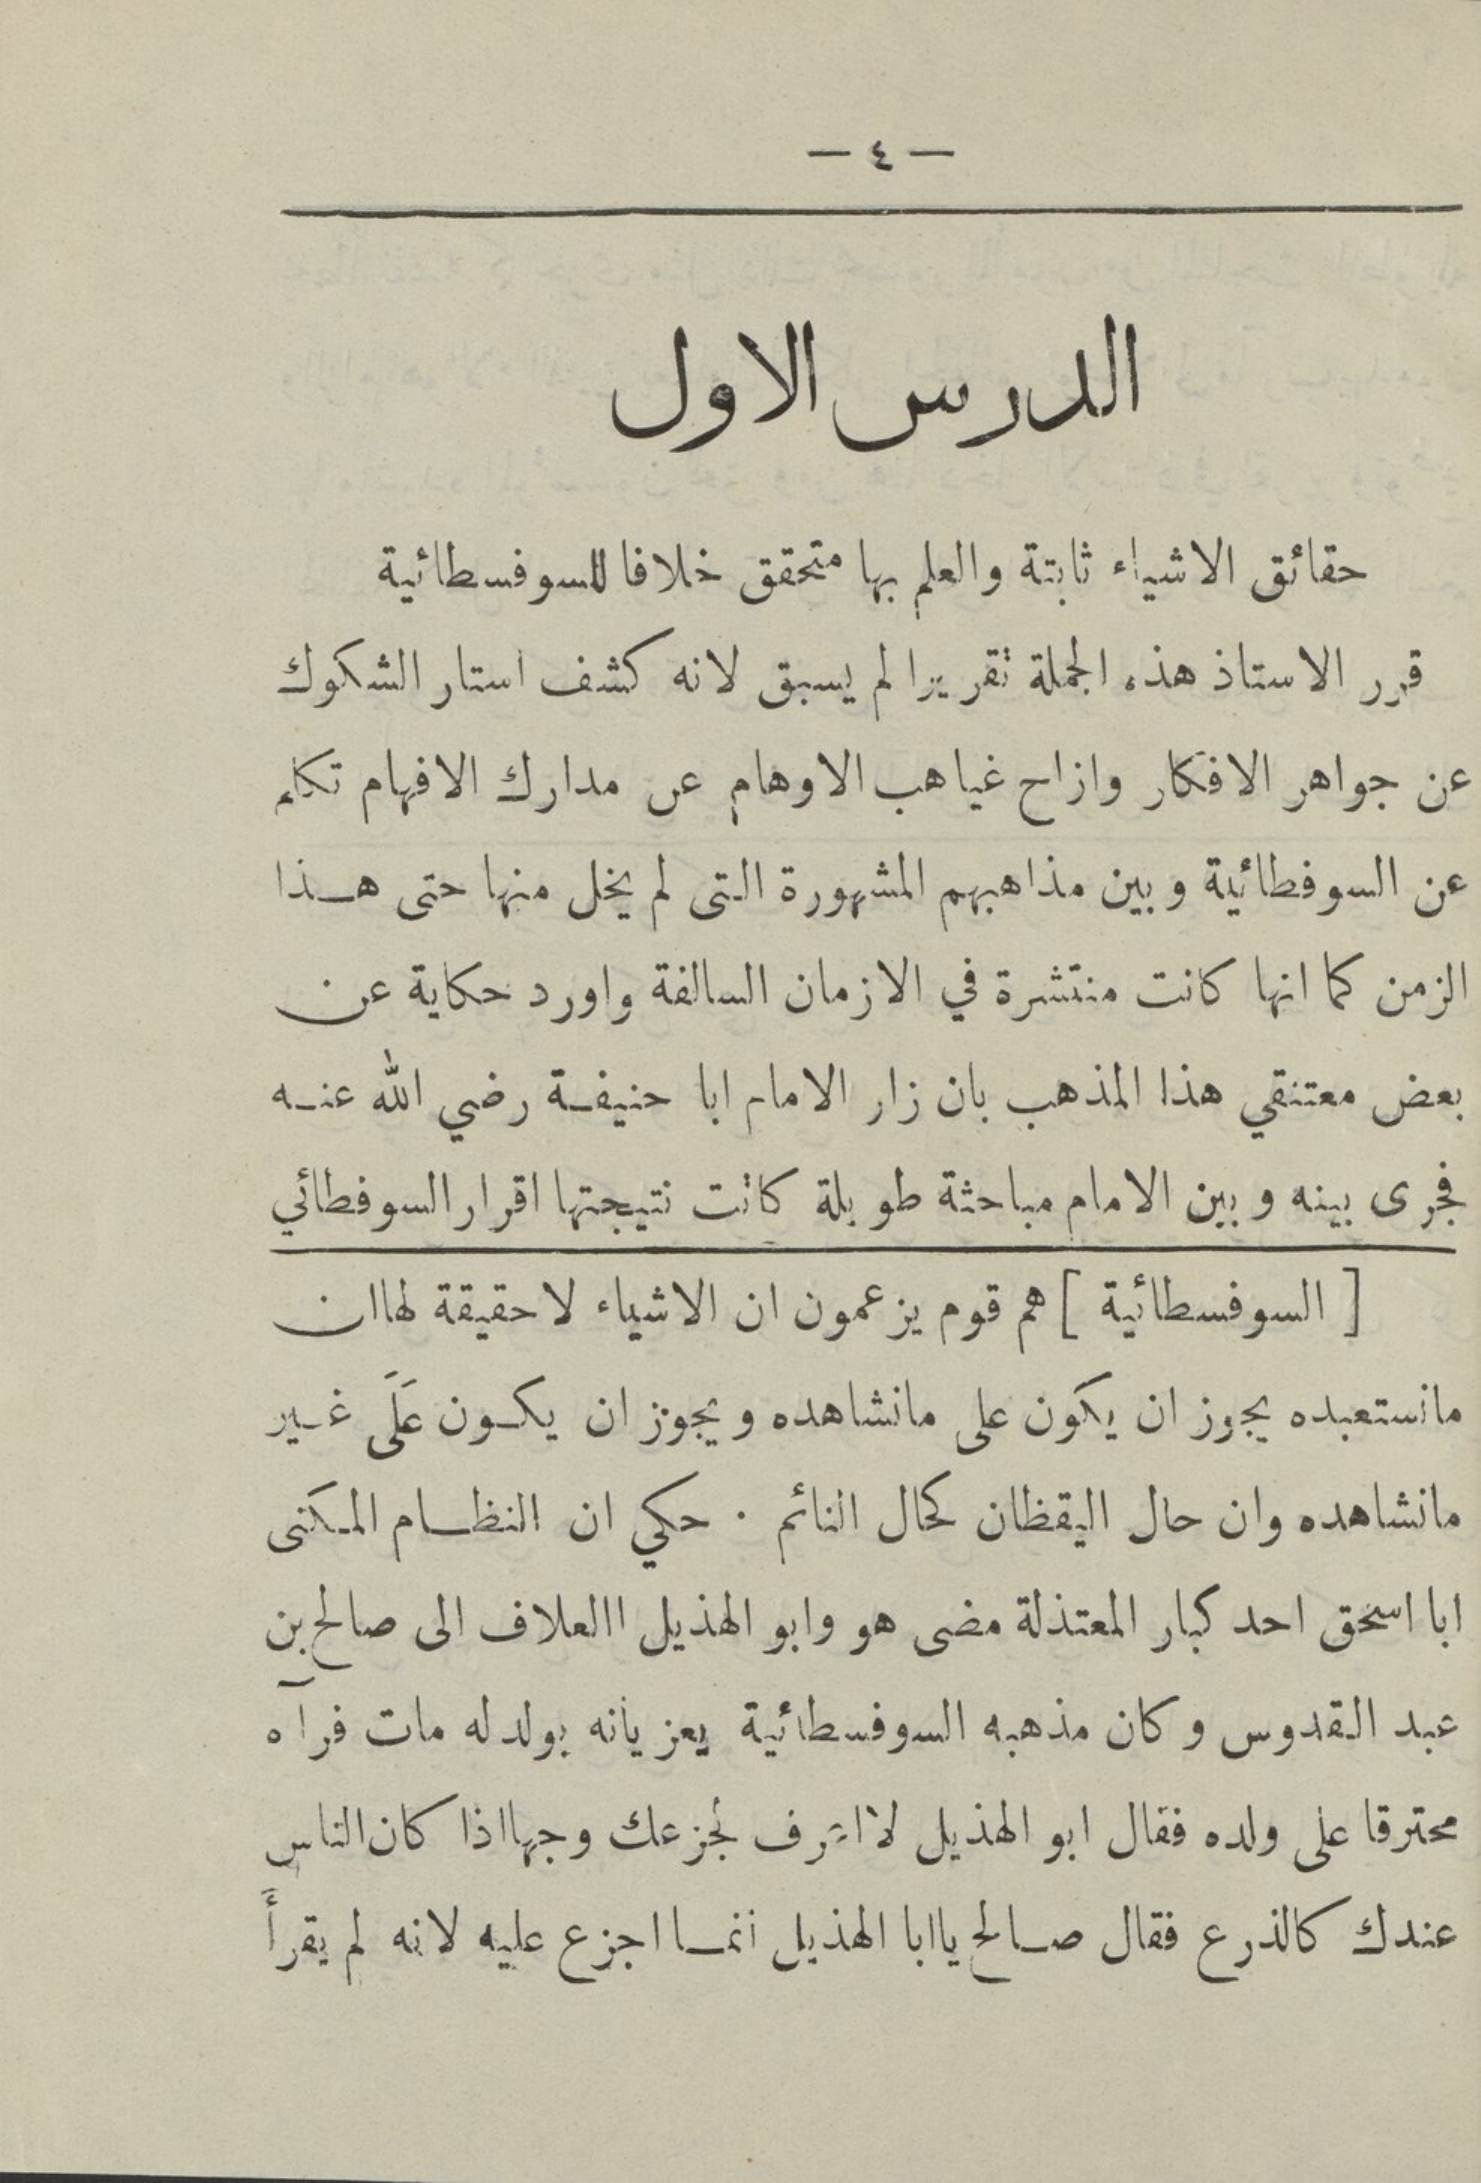 — ٤ —
الدرس الاول
حقائق الاشياء ثابتة والعلم بها متحقق خلافا للسوفسطائية
قرر الاستاذ هذه الجملة تقريرا لم يسبق لانه كشف استار الشكوك
عن جواهر الافكار وازاح غياهب الاوهام عن مدارك الافهام تكلم
عن السوفطائية وبين مذاهبهم المشهورة التى لم يخل منها حتى هذا
الزمن كما انها كانت منتشرة في الازمان السالفة واورد حكاية عن
بعض معتنقي هذا المذهب بان زار الامام ابا حنيفة رضي الله عنه
فجرى بينه وبين الامام مباحثة طويلة كانت نتيجتها اقرار السوفطائي
[ السوفسطائية ] هم قوم يزعمون ان الاشياء لاحقيقة لها ان
مانستعبده يجوز ان يكون على مانشاهده ويجوز ان يكون عَلَى غير
مانشاهده وان حال اليقظان كحال النائم . حكي ان النظام المكنى
ابا اسحق احد كبار المعتذلة مضى هو وابو الهذيل االعلاف الى صالح بن
عبد القدوس وكان مذهبه السوفسطائية يعزيانه بولد له مات فرآه
محترقا على ولده فقال ابو الهذيل لا اعرف لجزعك وجها اذا كان الناس
عندك كالذرع فقال صالح ياابا الهذيل انما اجزع عليه لانه لم يقرأ